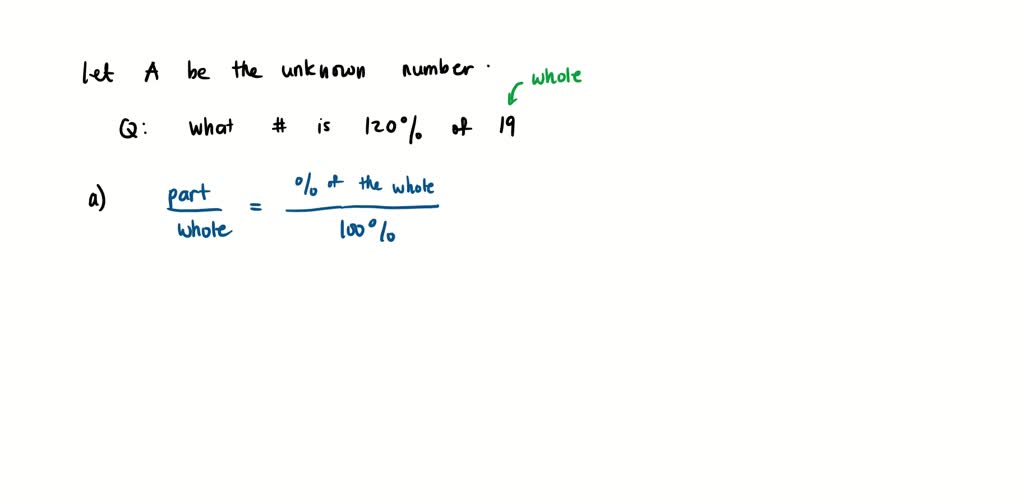 let A be the unknown number.
whole
Q: what # is 120% of 19
a) part / whole = % of the whole / 100%